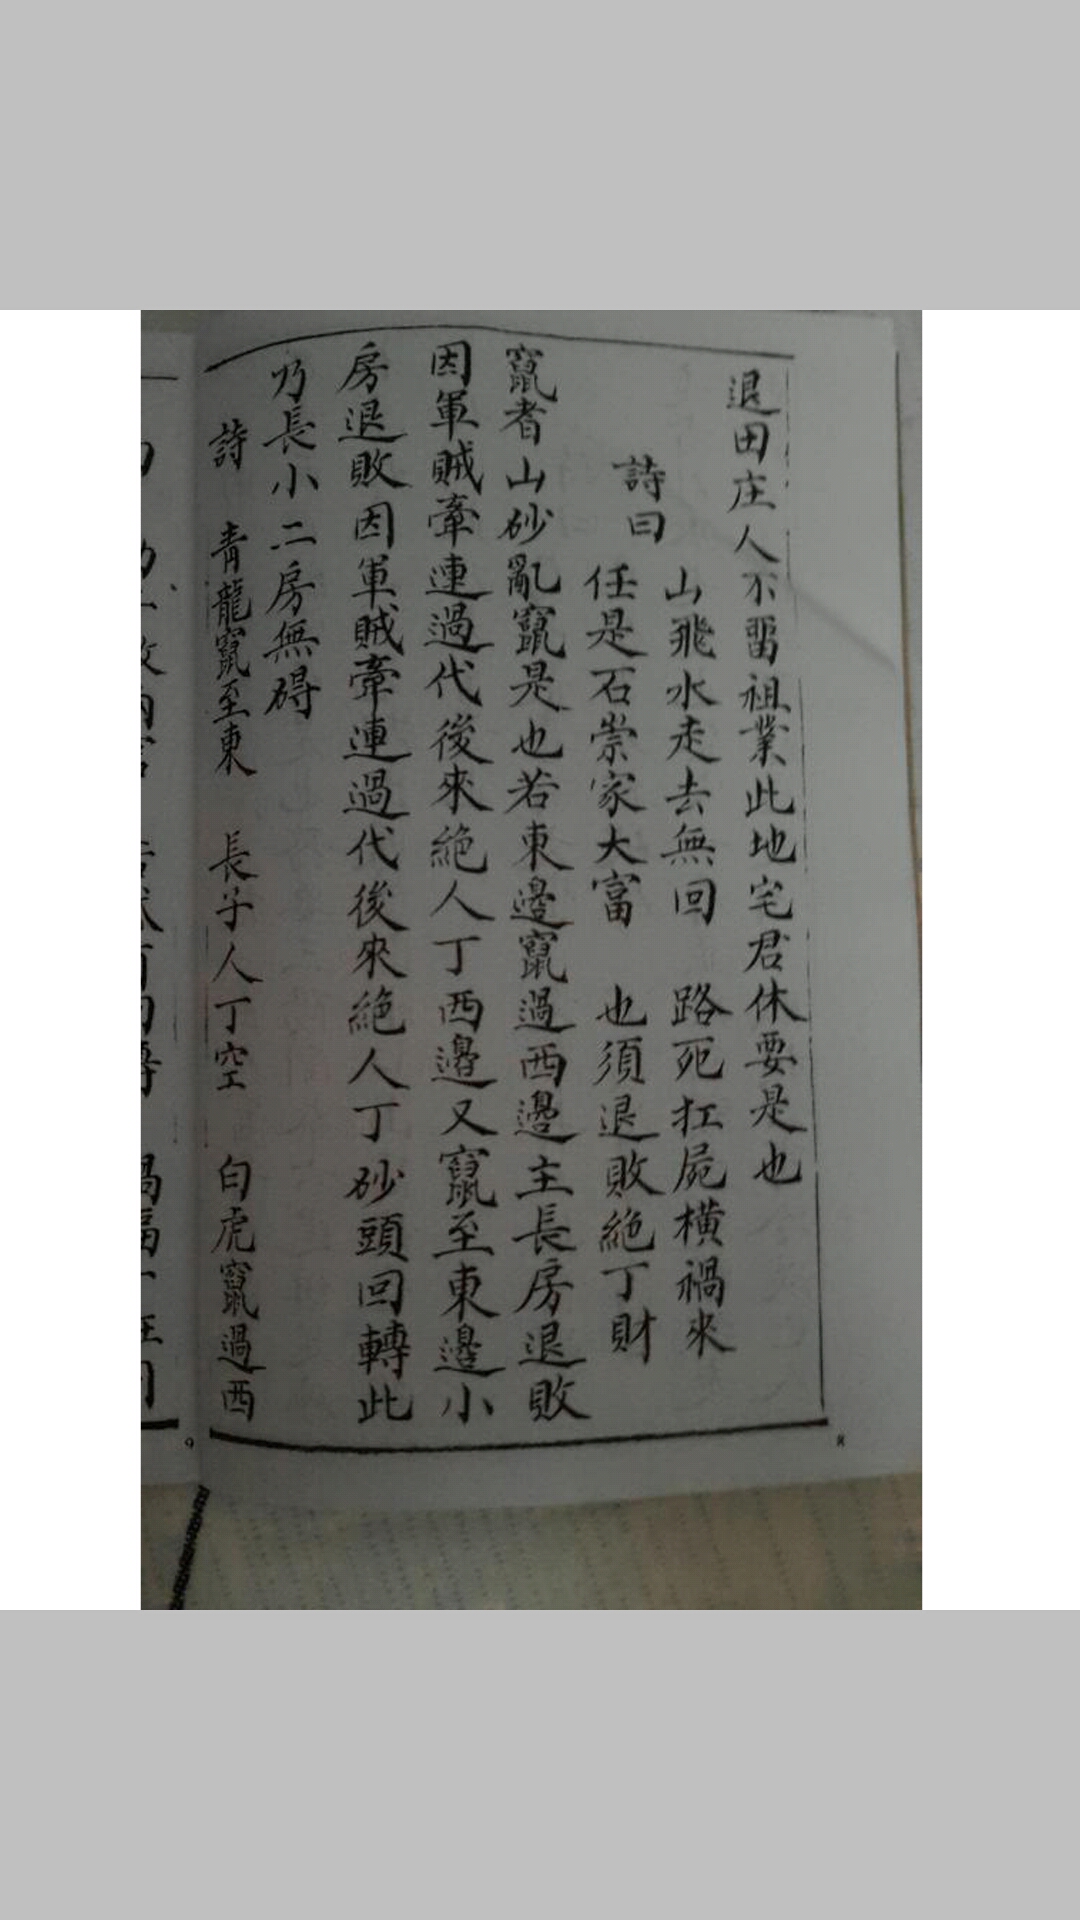 退田庄人不留祖業此地宅君休要是也
山飛水走去無回　路死扛屍橫禍來
詩曰
任是石崇家大富　也須退敗絕丁財
竄者山砂亂竄是也若東邊竄過西邊主長房退敗
因軍賊牽連過代後來絕人丁西邊又竄至東邊小
房退敗因軍賊牽連過代後來絕人丁砂頭回轉此
乃長小二房無碍
詩　青龍竄至東　長子人丁空　白虎竄過西
8
9